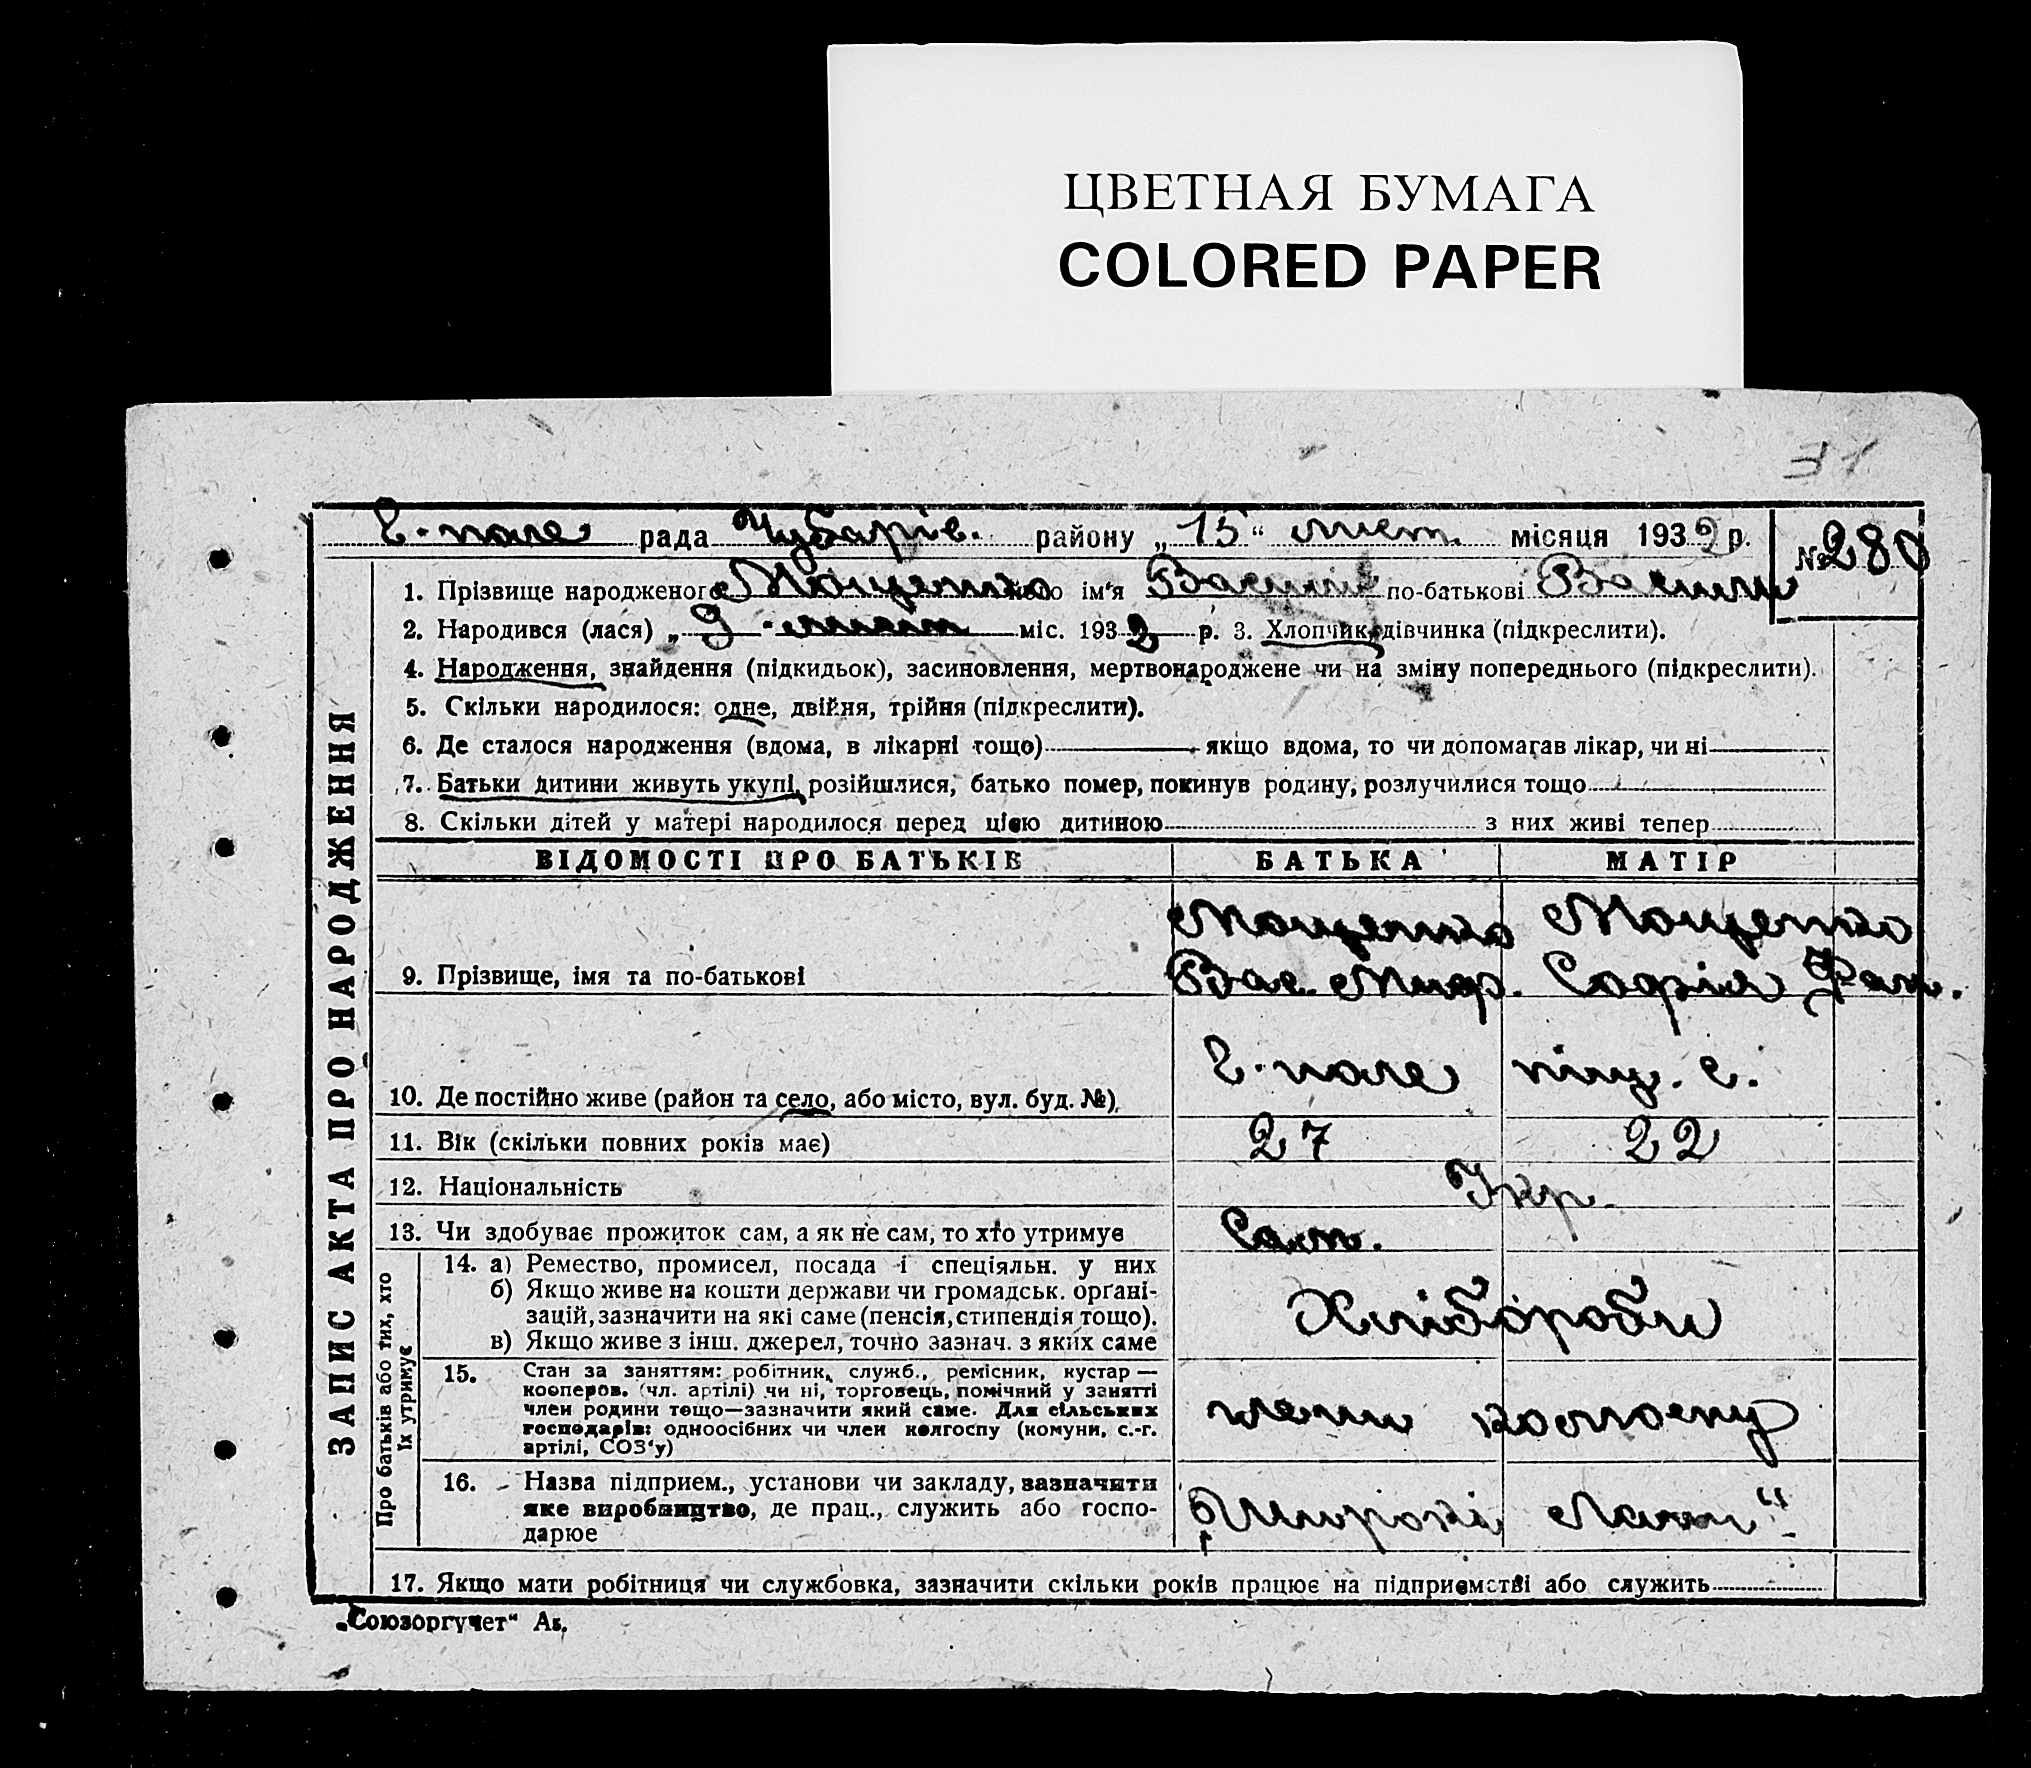 ЦВЕТНАЯ БУМАГА
COLORED PAPER
31
поле рада Чубарів. району „15“ лист. місяця 1932 р. № 280
1. Прізвище народженого Мощенко ім'я Василь по-батькові Васильи
2. Народився (лася) „9“ міс. 1932 р. 3. Хлопчик, дівчинка (підкреслити).
4. Народження, знайдення (підкидьок), засиновлення, мертвонароджене чи на зміну попереднього (підкреслити).
5. Скільки народилося: одне, двійня, трійня (підкреслити).
6. Де сталося народження (вдома, в лікарні тощо) якщо вдома, то чи допомагав лікар, чи ні
7. Батьки дитини живуть укупі, розійшлися, батько помер, покинув родину, розлучилися тощо
8. Скільки дітей у матері народилося перед цією дитиною з них живі тепер
ЗАПИС АКТА ПРО НАРОДЖЕННЯ
ВІДОМОСТІ ПРО БАТЬКІВ БАТЬКА МАТІР
Мощенко Мощенко
9. Прізвище, імя та по-батькові Вас. Софія
поле
10. Де постійно живе (район та село, або місто, вул. буд. №)
11. Вік (скільки повних років має) 27 22
12. Національність Укр.
13. Чи здобуває прожиток сам, а як не сам, то хто утримує Сам.
Про батьків або тих, хто їх утримує
14. а) Ремество, промисел, посада і спеціяльн. у них
б) Якщо живе на кошти держави чи громадськ. орґані-
зацій, зазначити на які саме (пенсія, стипендія тощо).
в) Якщо живе з інш. джерел, точно зазнач. з яких саме
Хлібороби
15. Стан за заняттям: робітник, служб., ремісник, кустар —
кооперов. (чл. артілі) чи ні, торговець, помічний у занятті
член родини тощо—зазначити який саме. Для сільських
господарів: одноосібних чи член колгоспу (комуни, с.-г.
артілі, СОЗ'у)
члени колгоспу
16. Назва підприєм., установи чи закладу, зазначити
яке виробництво, де прац., служить або госпо-
дарює
„Широкі Лани“
17. Якщо мати робітниця чи службовка, зазначити скільки років працює на підприємстві або служить
„Союзоргучет“